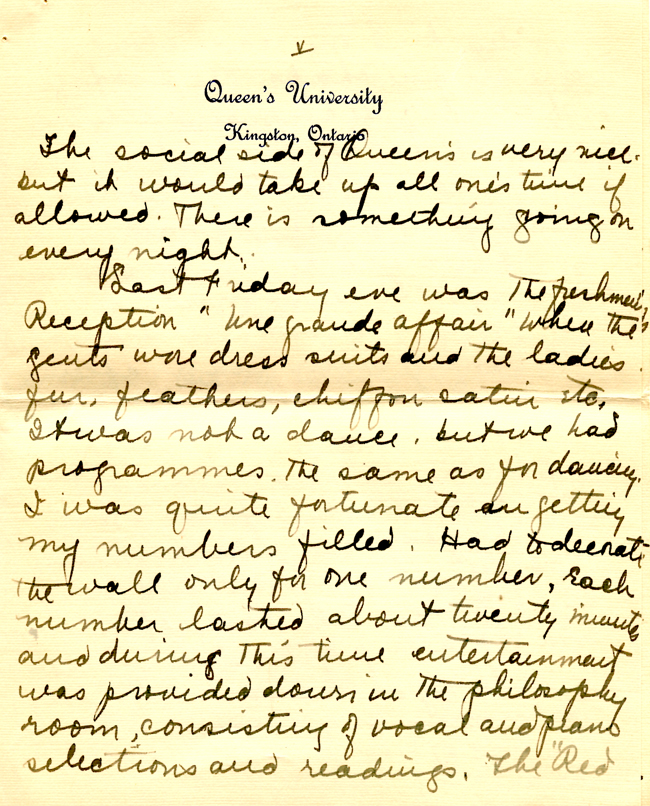 V
Queen's University
Kingston, Ontario
The social side of Queen's is very nice.
but it would take up all one's time if
allowed. There is something going on
every night.
Last Friday eve was the freshmen's
Reception "Une grande affair" where the
gents wore dress suits and the ladies
fur, feathers, chiffon satin etc.
It was not a dance, but we had
programmes. The same as for dancing.
I was quite fortunate in getting
my numbers filled. Had to decorate
the wall only for one number, Each
number lasted about twenty minutes
and during this time entertainment
was provided down in the philosophy
room, consisting of vocal and piano
selections and readings. The "Red